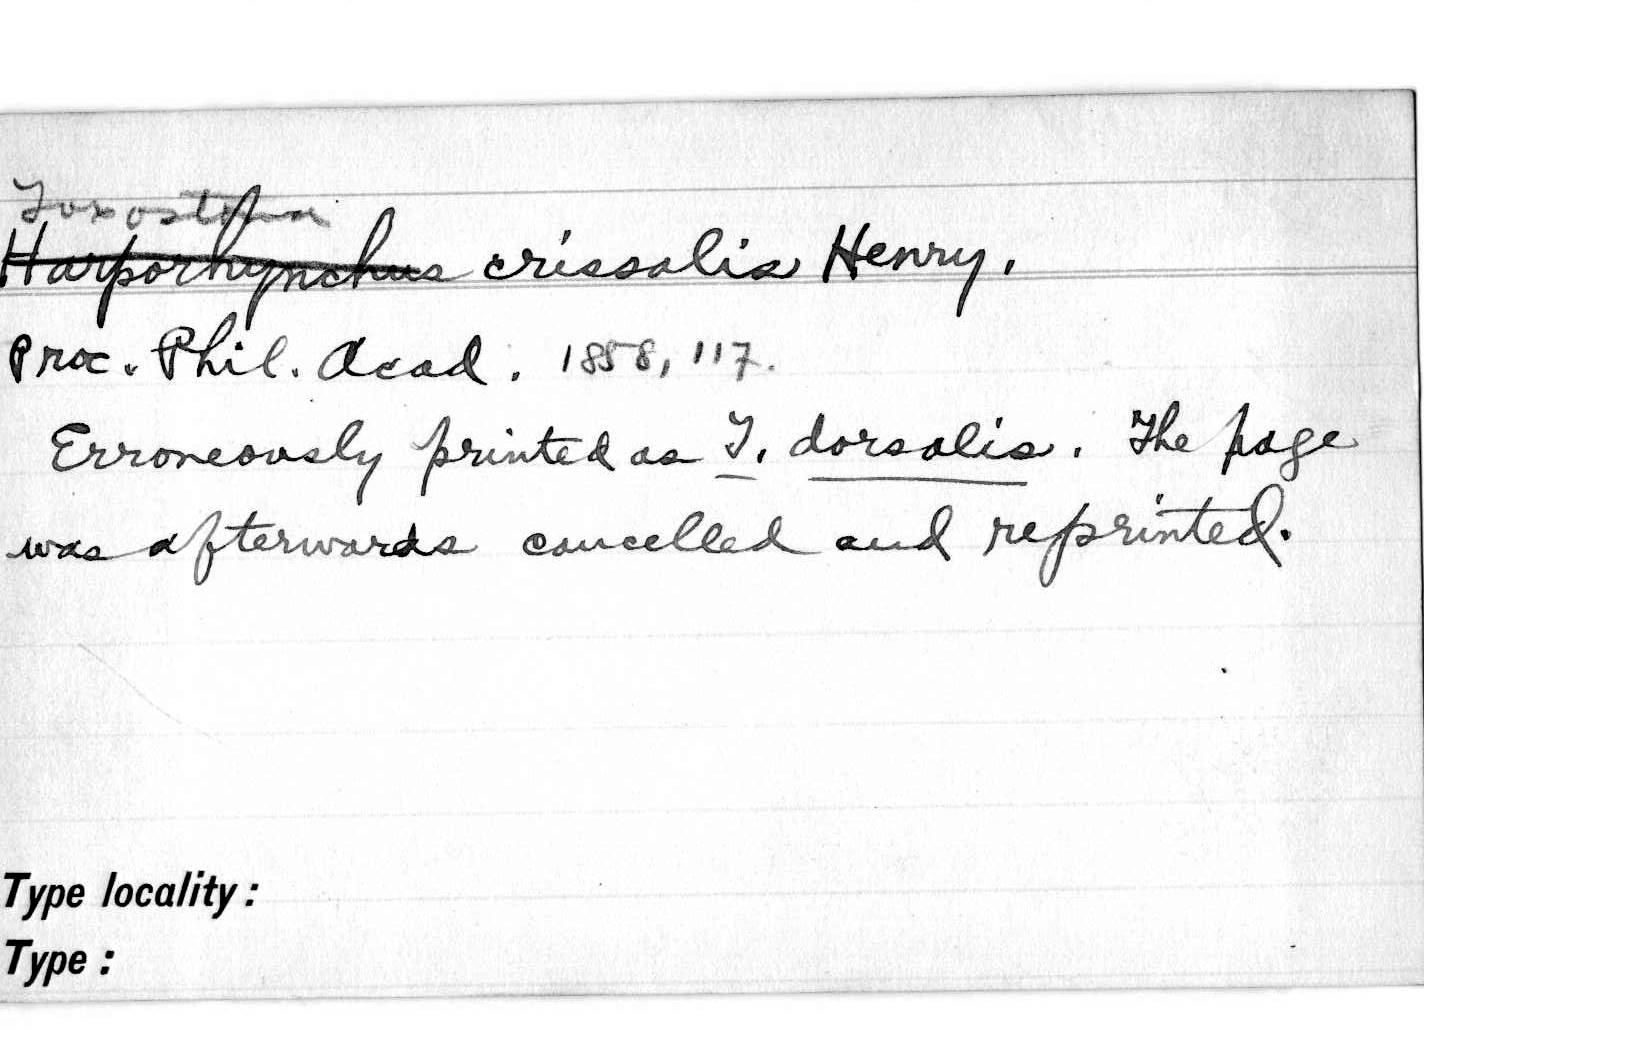 Toxostoma
Harporhynchus crissalis Henry.
Proc. Phil. Acad. 1858, 117.
Erroneously printed as T. dorsalis. The page
was afterwards cancelled and reprinted.
Type locality:
Type: